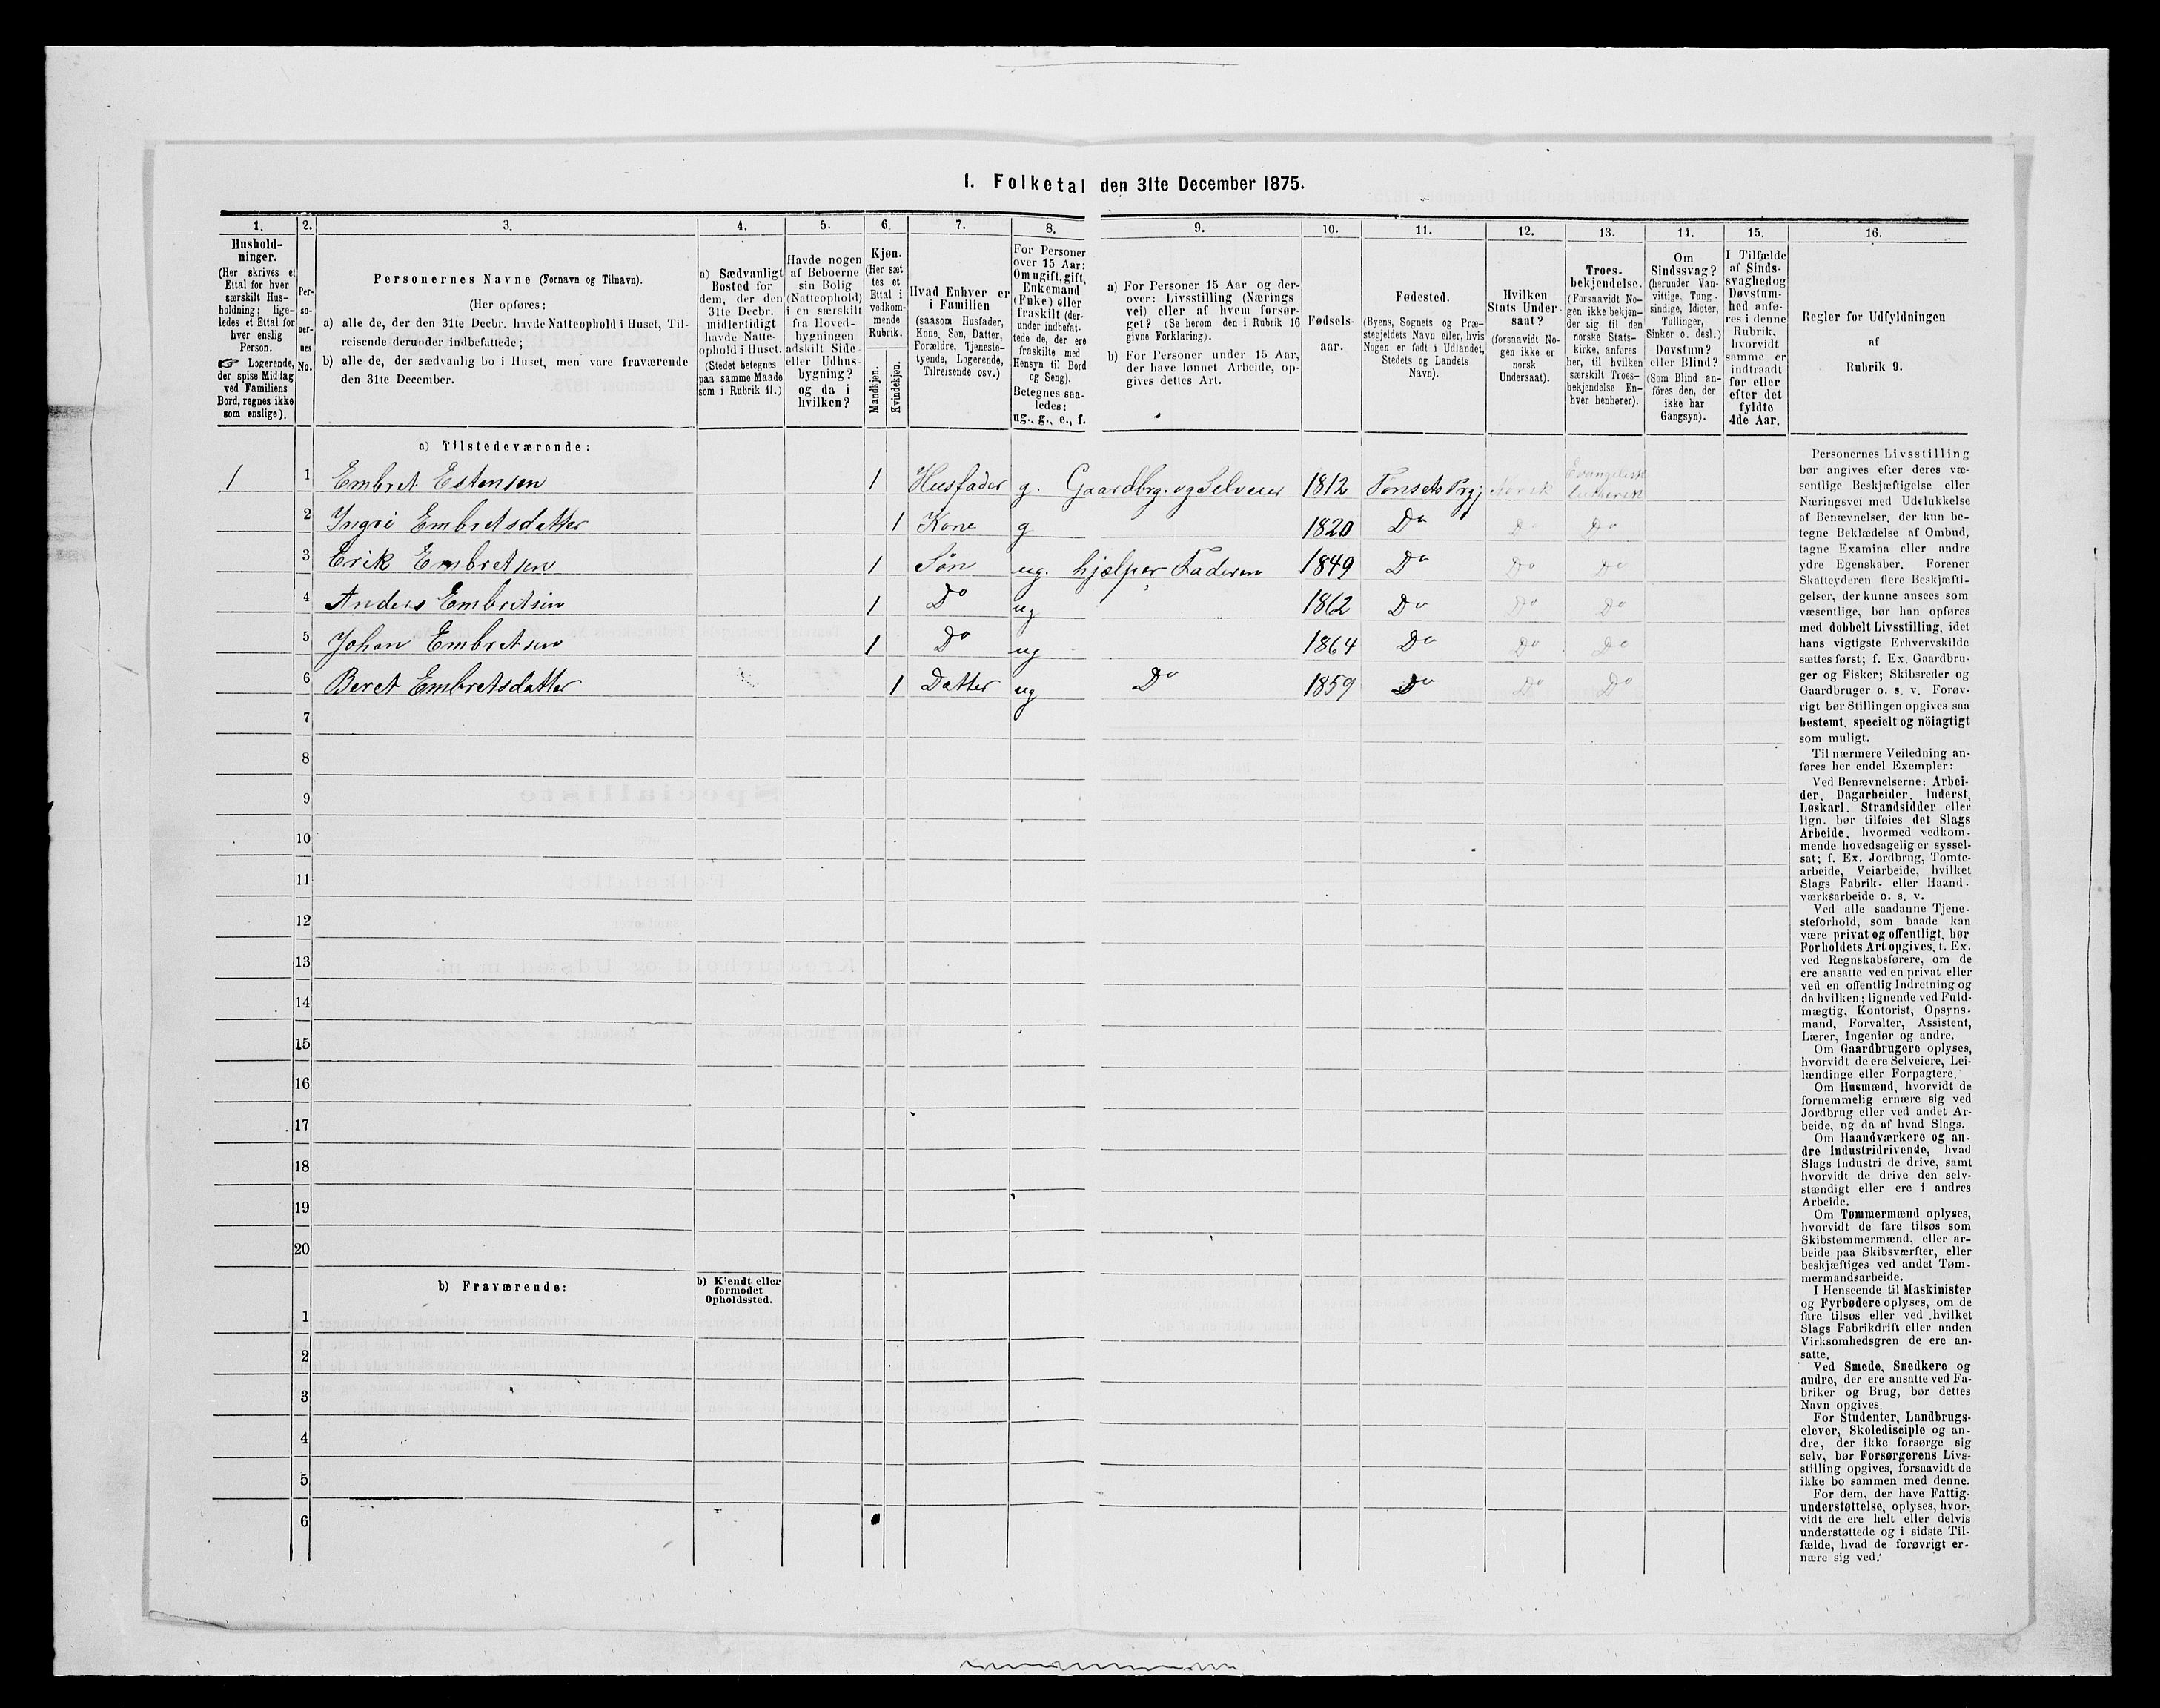 1. Folketal den 31te December 1875.
1. 2. 3. 4. 5. 6. 7. 8. 9. 10. 11. 12. 13. 14. 15. 16.
Hushold-
ninger.
(Her skrives et
Ettal for hver
særskilt Hus-
holdning; lige-
ledes et Ettal for
hver enslig
Person.
☞ Logerende,
der spise Middag
ved Familiens
Bord, regnes ikke
som enslige).
Per-
so-
ner-
nes
No.
Personernes Navne (Fornavn og Tilnavn).
(Her opføres:
a) alle de, der den 31te Decbr. havde Natteophold i Huset, Til-
reisende derunder indbefattede;
b) alle de, der sædvanlig bo i Huset, men vare fraværende
den 31te December.
a) Sædvanligt
Bosted for
dem, der den
31te Decbr.
midlertidigt
havde Natte-
ophold i Huset.
(Stedet betegnes
paa samme Maade
som i Rubrik 11.)
Havde nogen
af Beboerne
sin Bolig
(Natteophold)
i en særskilt
fra Hoved-
bygningen
adskilt Side-
eller Udhus-
bygning?
og da i
hvilken?
Kjøn.
(Her sæt
tes et
Ettal i
vedkom-
mende
Rubrik.
Mandkjøn.
Kvindekjøn.
Hvad Enhver er
i Familien
(saasom Husfader,
Kone, Søn, Datter,
Forældre, Tjeneste-
tyende, Logerende,
Tilreisende osv.)
For Personer
over 15 Aar:
Om ugift, gift,
Enkemand
(Enke) eller
fraskilt (der-
under indbefat-
tede de, der ere
fraskilte med
Hensyn til Bord
og Seng).
Betegnes saa-
ledes:
ug., g., e., f.
a) For Personer 15 Aar og der-
over: Livsstilling (Nærings
vei) eller af hvem forsør-
get? (Se herom den i Rubrik 16
givne Forklaring).
b) For Personer under 15 Aar,
der have lønnet Arbeide, op-
gives dettes Art.
Fødsels-
aar.
Fødested.
(Byens, Sognets og Præ-
stegjeldets Navn eller, hvis
Nogen er født i Udlandet,
Stedets og Landets
Navn).
Hvilken
Stats Under-
saat?
(forsaavidt No-
gen ikke er
norsk
Undersaat).
Troes-
bekjendelse.
(Forsaavidt No-
gen ikke bekjen-
der sig til den
norske Stats-
kirke, anføres
her, til hvilken
særskilt Troes-
bekjendelse En-
hver henhører).
Om
Sindssvag?
(herunder Van-
vittige, Tung-
sindige, Idioter,
Tullinger,
Sinker o. desl.)
Døvstum?
eller Blind?
(Som Blind an-
føres den, der
ikke har
Gangsyn).
I Tilfælde
af Sinds-
svaghedog
Døvstum-
hed anfø-
res i denne
Rubrik,
hvorvidt
samme er
indtraadt
før eller
efter det
fyldte
4de Aar.
Regler for Udfyldningen
af
Rubrik 9.
a) Tilstedeværende:
1 1 Embret Estensen 1 Husfader g. Gaardbrg. og Selveier 1812 Tønsets Prgj Norsk Evangelisk
lutherisk
2 Ingri Embretsdatter 1 Kone g 1820 Do Do Do
3 Erik Embretsen 1 Søn ug. hjælper Faderen 1849 Do Do Do
4 Anders Embretsen 1 Do ug 1862 Do Do Do
5 Johan Embretsen 1 Do ug 1864 Do Do Do
6 Beret Embretsdatter 1 Datter ug Do 1859 Do Do Do
7
8
9
10
11
12
13
14
15
16
17
18
19
20
b) Fraværende:
b) Kjendt eller
formodet
Opholdssted.
1
2
3
4
5
6
Personernes Livsstilling
bør angives efter deres væ-
sentlige Beskjæftigelse eller
Næringsvei med Udelukkelse
af Benævnelser, der kun be-
tegne Beklædelse af Ombud,
tagne Examina eller andre
ydre Egenskaber. Forener
Skatteyderen flere Beskjæfti-
gelser, der kunne ansees som
væsentlige, bør han opføres
med dobbelt Livsstilling, idet
hans vigtigste Erhvervskilde
sættes først; f. Ex. Gaardbru-
ger og Fisker; Skibsreder og
Gaardbruger o. s. v. Forøv-
rigt bør Stillingen opgives saa
bestemt, specielt og nöiagtigt
som muligt.
Til nærmere Veiledning an-
føres her endel Exempler:
Ved Benævnelserne: Arbei-
der, Dagarbeider, Inderst,
Løskarl, Strandsidder eller
lign. bør tilføies det Slags
Arbeide, hvormed vedkom-
mende hovedsagelig er syssel-
sat; f. Ex. Jordbrug, Tomte-
arbeide, Veiarbeide, hvilket
Slags Fabrik- eller Haand-
værksarbeide o. s. v.
Ved alle saadanne Tjene-
steforhold, som baade kan
være privat og offentligt, bør
Forholdets Art opgives, f. Ex.
ved Regnskabsførere, om de
ere ansatte ved en privat eller
ved en offentlig Indretning og
da hvilken; lignende ved Fuld-
mægtig, Kontorist, Opsyns-
mand, Forvalter, Assistent,
Lærer, Ingeniør og andre.
Om Gaardbrugere oplyses,
hvorvidt de ere Selveiere, Lei-
lændinge eller Forpagtere.
Om Husmænd, hvorvidt de
fornemmelig ernære sig ved
Jordbrug eller ved andet Ar-
beide, og da af hvad Slags.
Om Haandværkere og an-
dre Industridrivende, hvad
Slags Industri de drive, samt
hvorvidt de drive den selv-
stændigt eller ere i andres
Arbeide.
Om Tømmermænd oplyses,
hvorvidt de fare tilsøs som
Skibstømmermænd, eller ar-
beide paa Skibsværfter, eller
beskjæftiges ved andet Tøm-
mermandsarbeide.
I Henseende til Maskinister
og Fyrbødere oplyses, om de
fare tilsøs eller ved hvilket
Slags Fabrikdrift eller anden
Virksomhedsgren de ere an-
satte.
Ved Smede, Snedkere og
andre, der ere ansatte ved Fa-
briker og Brug, bør dettes
Navn opgives.
For Studenter, Landbrugs-
elever, Skoledisciple og an-
dre, der ikke forsørge sig
selv, bør Forsørgerens Livs-
stilling opgives, forsaavidt de
ikke bo sammen med denne.
For dem, der have Fattig-
understøttelse, oplyses, hvor-
vidt de ere helt eller delvis
understøttede og i sidste Til-
fælde, hvad de forøvrigt er-
nære sig ved.